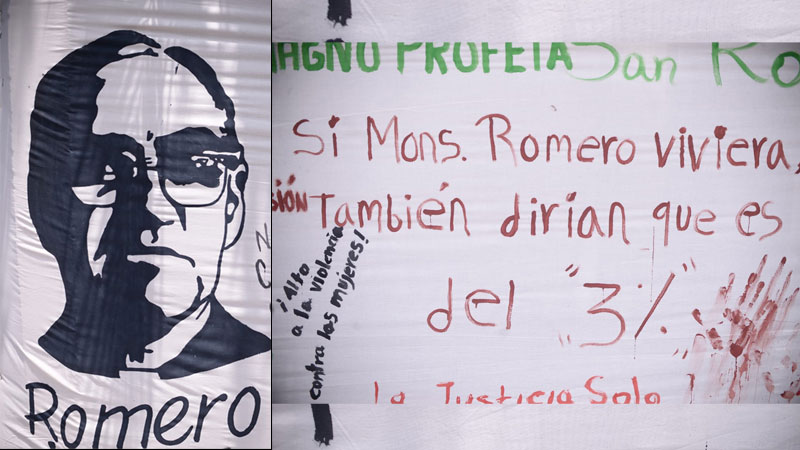 Romero
MAGNO PROFETA San Ro
Si Mons. Romero viviera,
SIÓN También dirian que es
del "3%"
¡Alto
a la violencia
contra las mujeres!
La Justicia Solo